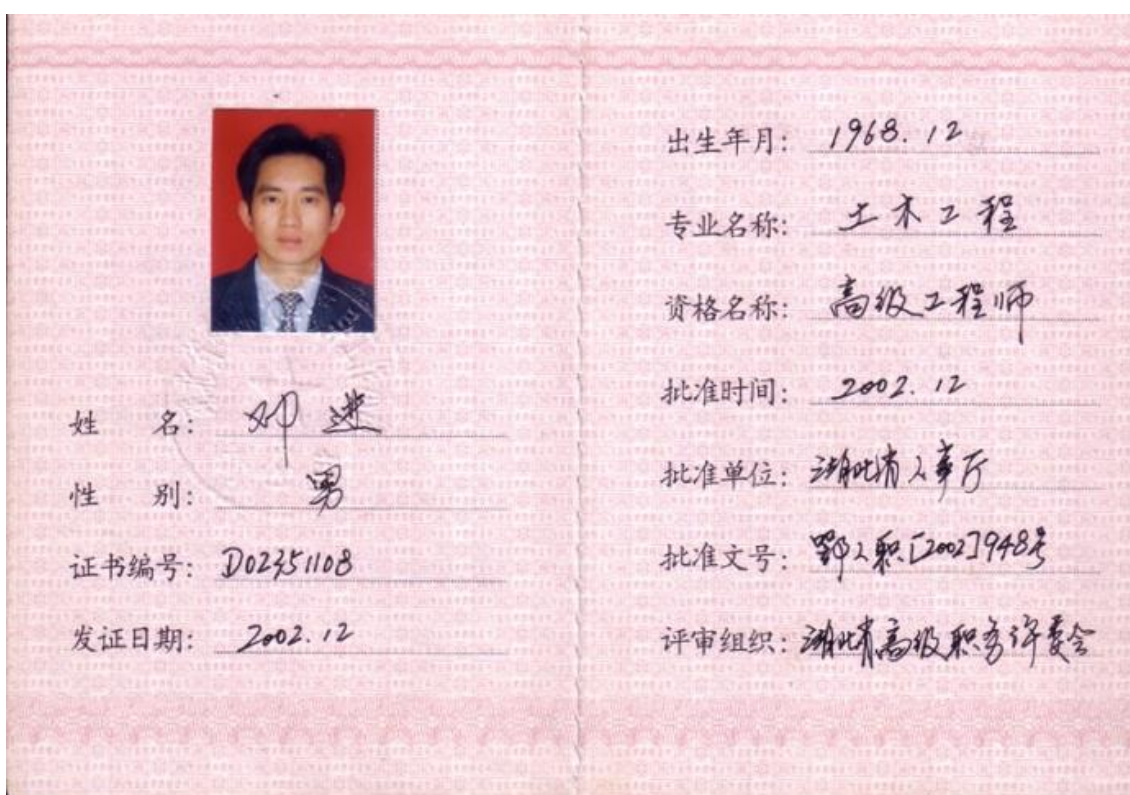 姓 名: 邓进
性 别: 男
证书编号: D02351108
发证日期: 2002.12
出生年月: 1968.12
专业名称: 土木工程
资格名称: 高级工程师
批准时间: 2002.12
批准单位: 湖北省人事厅
批准文号: 鄂人职[2002]948号
评审组织: 湖北省高级职务评委会